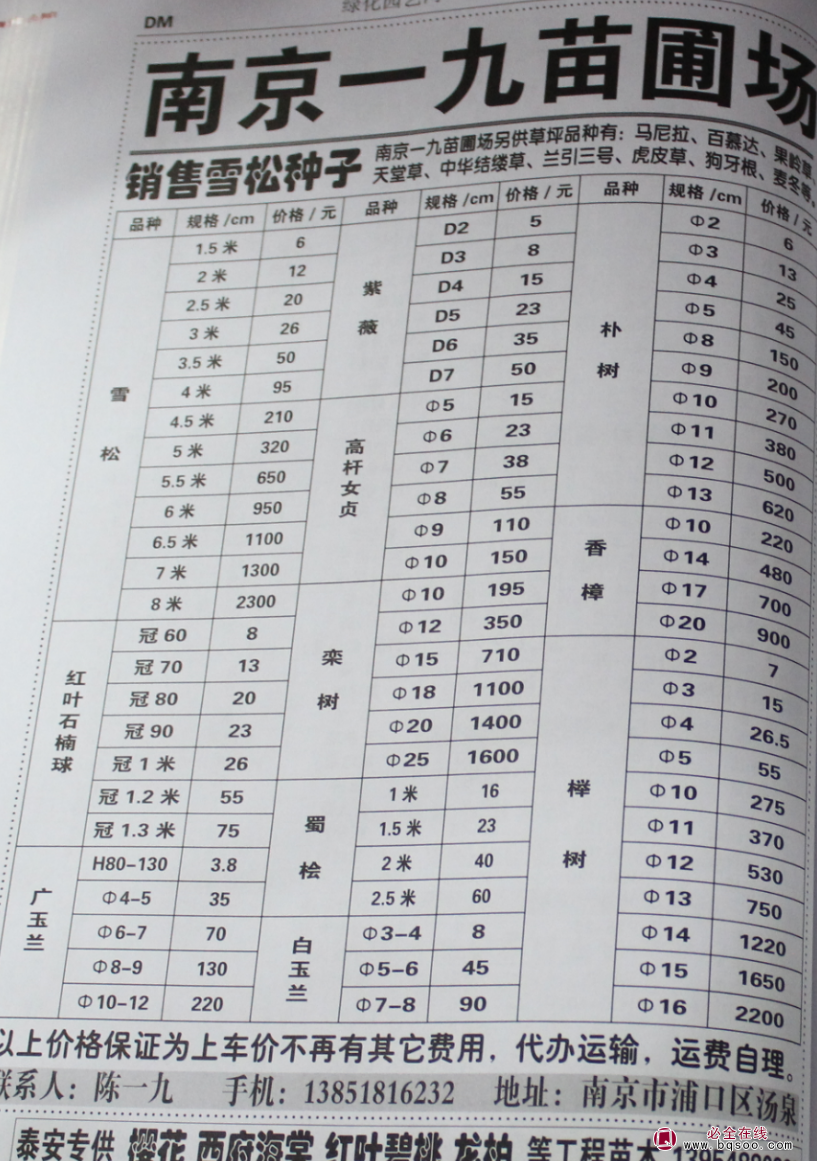 DM
南京一九苗圃场
销售雪松种子
南京一九苗圃场另供草坪品种有：马尼拉、百慕达、果岭草、
天堂草、中华结缕草、兰引三号、虎皮草、狗牙根、麦冬等。
品种 规格/cm 价格/元
雪松
1.5米 6
2米 12
2.5米 20
3米 26
3.5米 50
4米 95
4.5米 210
5米 320
5.5米 650
6米 950
6.5米 1100
7米 1300
8米 2300
红叶石楠球
冠60 8
冠70 13
冠80 20
冠90 23
冠1米 26
冠1.2米 55
冠1.3米 75
广玉兰
H80-130 3.8
Φ4-5 35
Φ6-7 70
Φ8-9 130
Φ10-12 220
品种 规格/cm 价格/元
紫薇
D2 5
D3 8
D4 15
D5 23
D6 35
D7 50
高杆女贞
Φ5 15
Φ6 23
Φ7 38
Φ8 55
Φ9 110
Φ10 150
栾树
Φ10 195
Φ12 350
Φ15 710
Φ18 1100
Φ20 1400
Φ25 1600
蜀桧
1米 16
1.5米 23
2米 40
2.5米 60
白玉兰
Φ3-4 8
Φ5-6 45
Φ7-8 90
品种 规格/cm 价格/元
朴树
Φ2 6
Φ3 13
Φ4 25
Φ5 45
Φ8 150
Φ9 200
Φ10 270
Φ11 380
Φ12 500
Φ13 620
香樟
Φ10 220
Φ14 480
Φ17 700
Φ20 900
榉树
Φ2 7
Φ3 15
Φ4 26.5
Φ5 55
Φ10 275
Φ11 370
Φ12 530
Φ13 750
Φ14 1220
Φ15 1650
Φ16 2200
以上价格保证为上车价不再有其它费用，代办运输，运费自理。
联系人：陈一九 手机：13851818232 地址：南京市浦口区汤泉
泰安专供 樱花 西府海棠 红叶碧桃 龙柏 等工程苗木
必全在线
www.bqsoo.com